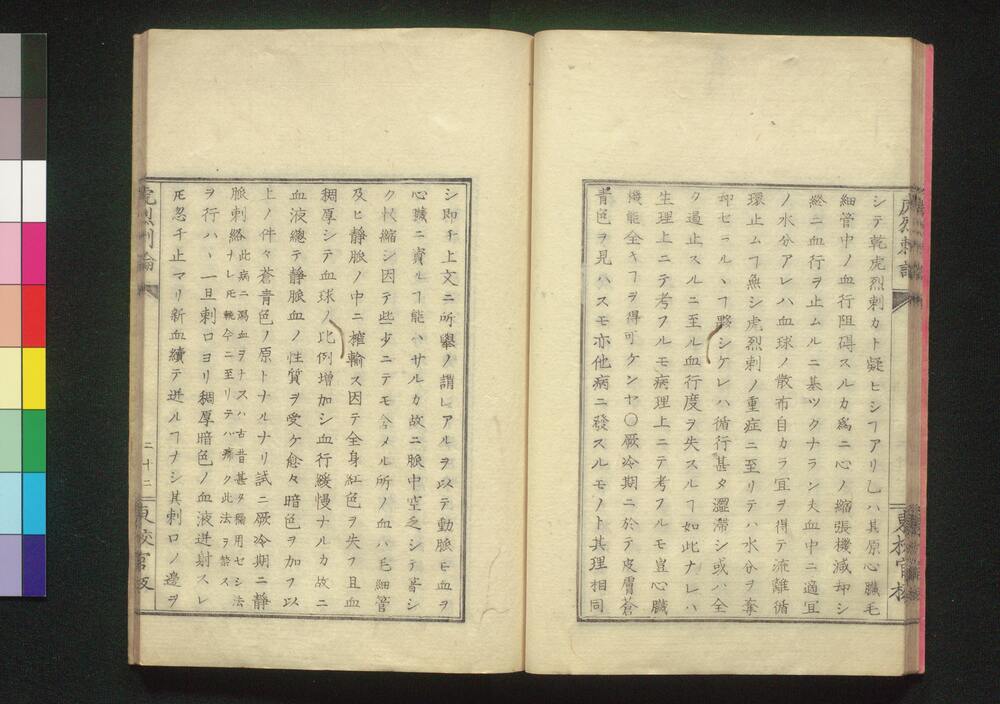 シテ乾虎烈刺カト疑ヒシヿアリ乚ハ其原心臓毛
細管中ノ血行阻碍スルカ為ニ心ノ縮張機減却シ
終ニ血行ヲ止ムルニ基ツクナラン夫血中ニ適宜
ノ水分アレハ血球ノ散布自カラ宜ヲ得テ流離循
環止ムヿ無シ虎烈刺ノ重症ニ至リテハ水分ヲ奪
却セラルヽヿ夥シケレハ循行甚タ澀滞シ或ハ全
ク遏止スルニ至ル血行度ヲ失スルヿ如此ナレハ
生理上ニテ考フルモ病理上ニテ考フルモ豈心臓
機能全キヿヲ得可ケンヤ〇厥冷期ニ於テ皮膚蒼
青色ヲ見ハスモ亦他病ニ發スルモノト其理相同
シ即チ上文ニ所擧ノ謂レアルヲ以テ動脈モ血ヲ
心臓ニ資ルヿ能ハサルカ故ニ脈中空乏シテ嗇シ
ク収縮シ因テ些少ニテモ含メル所ノ血ハ毛細管
及ヒ静脈ノ中ニ搾輸ス因テ全身紅色ヲ失フ且血
稠厚シテ血球ノ比例増加シ血行緩慢ナルカ故ニ
血液總テ静脈血ノ性質ヲ受ケ愈々暗色ヲ加フ以
上ノ件々蒼青色ノ原トナルナリ試ニ厥冷期ニ静
脈刺絡此病ニ瀉血ヲナスハ古昔甚タ稱用セシ法ナレ𪜈輓今ニ至リテハ痛ク此法ヲ禁ス
ヲ行ハヽ一旦刺口ヨリ稠厚暗色ノ血液迸射スレ
𪜈忽チ止マリ新血續テ迸ルヿナシ其刺口ノ邊ヲ
虎烈刺論
二十二
東校官版